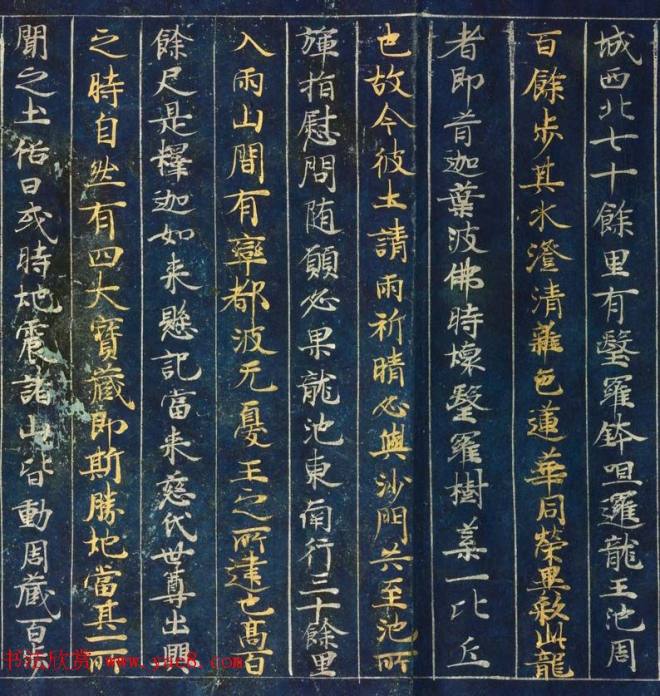 城西北七十餘里有毉羅鉢呾邏龍王池周
百餘步其水澄清雜色蓮華同榮異彩此龍
者即昔迦葉波佛時壞毉羅樹葉一比丘
也故今彼土請雨祈晴必與沙門共至池所
彈指慰問随願必果龍池東南行三十餘里
入兩山間有窣都波无憂王之所建也髙百
餘尺是釋迦如来懸記當来慈氏世尊出興
之時自然有四大寶藏即斯勝地當其一所
聞之土俗曰或時地震諸山皆動周藏百步
书法欣赏 www.yac8.com